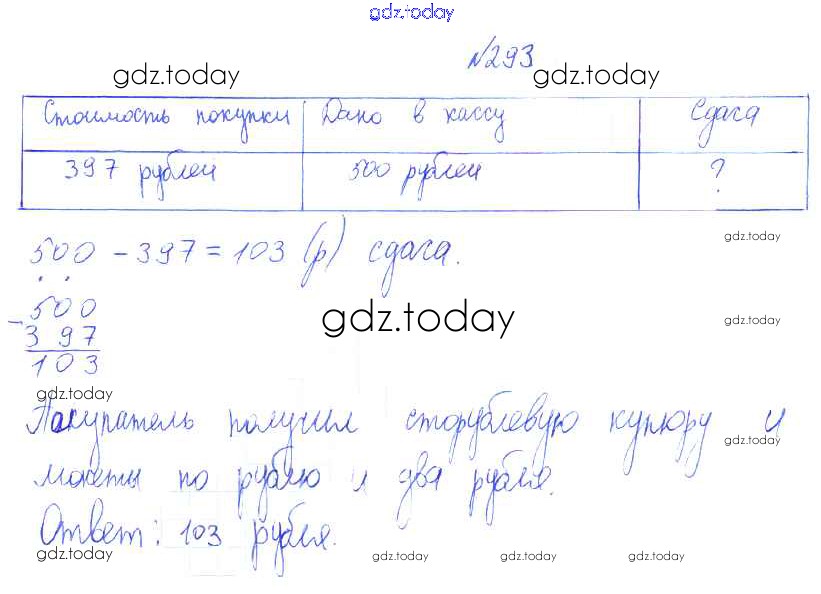 gdz.today
№293
gdz.today gdz.today
Стоимость покупки Дано в кассу Сдача
397 рублей 500 рублей ?
gdz.today
500 - 397 = 103 (р) сдача.
500
- gdz.today gdz.today
397
103
gdz.today
Покупатель получил сторублевую купюру и
gdz.today
монеты по рублю и два рубля.
Ответ: 103 рубля.
gdz.today gdz.today gdz.today gdz.today